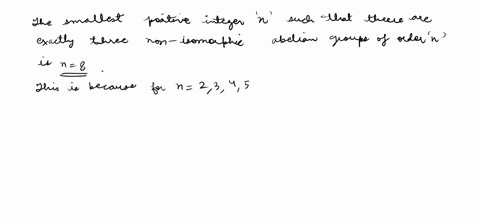 The smallest positive integer 'n' such that theere are
exactly three non-isomorphic abelian groups of order 'n'
is n=8.
This is because for n= 2,3,4,5